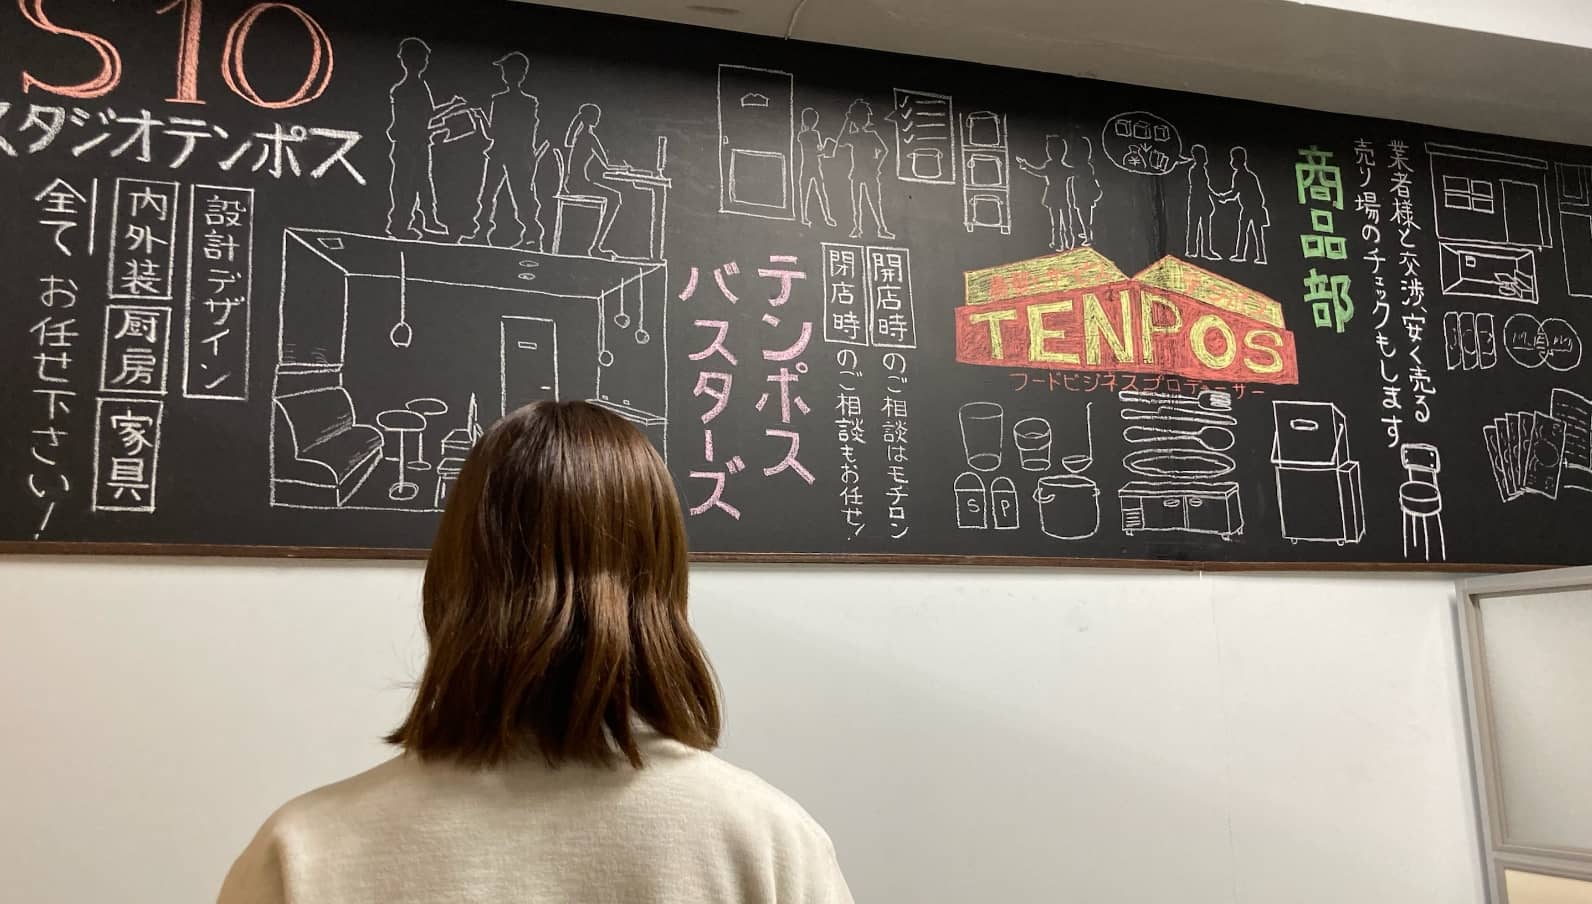 S10
スタジオテンポス
設計デザイン
内外装
厨房
家具
全て お任せ下さい!
テンポス
バスターズ
開店時のご相談はモチロン
閉店時のご相談もお任せ!
TENPOS
フードビジネスプロデューサー
S P
商品部
業者様と交渉、安く売る
売り場のチェックもします